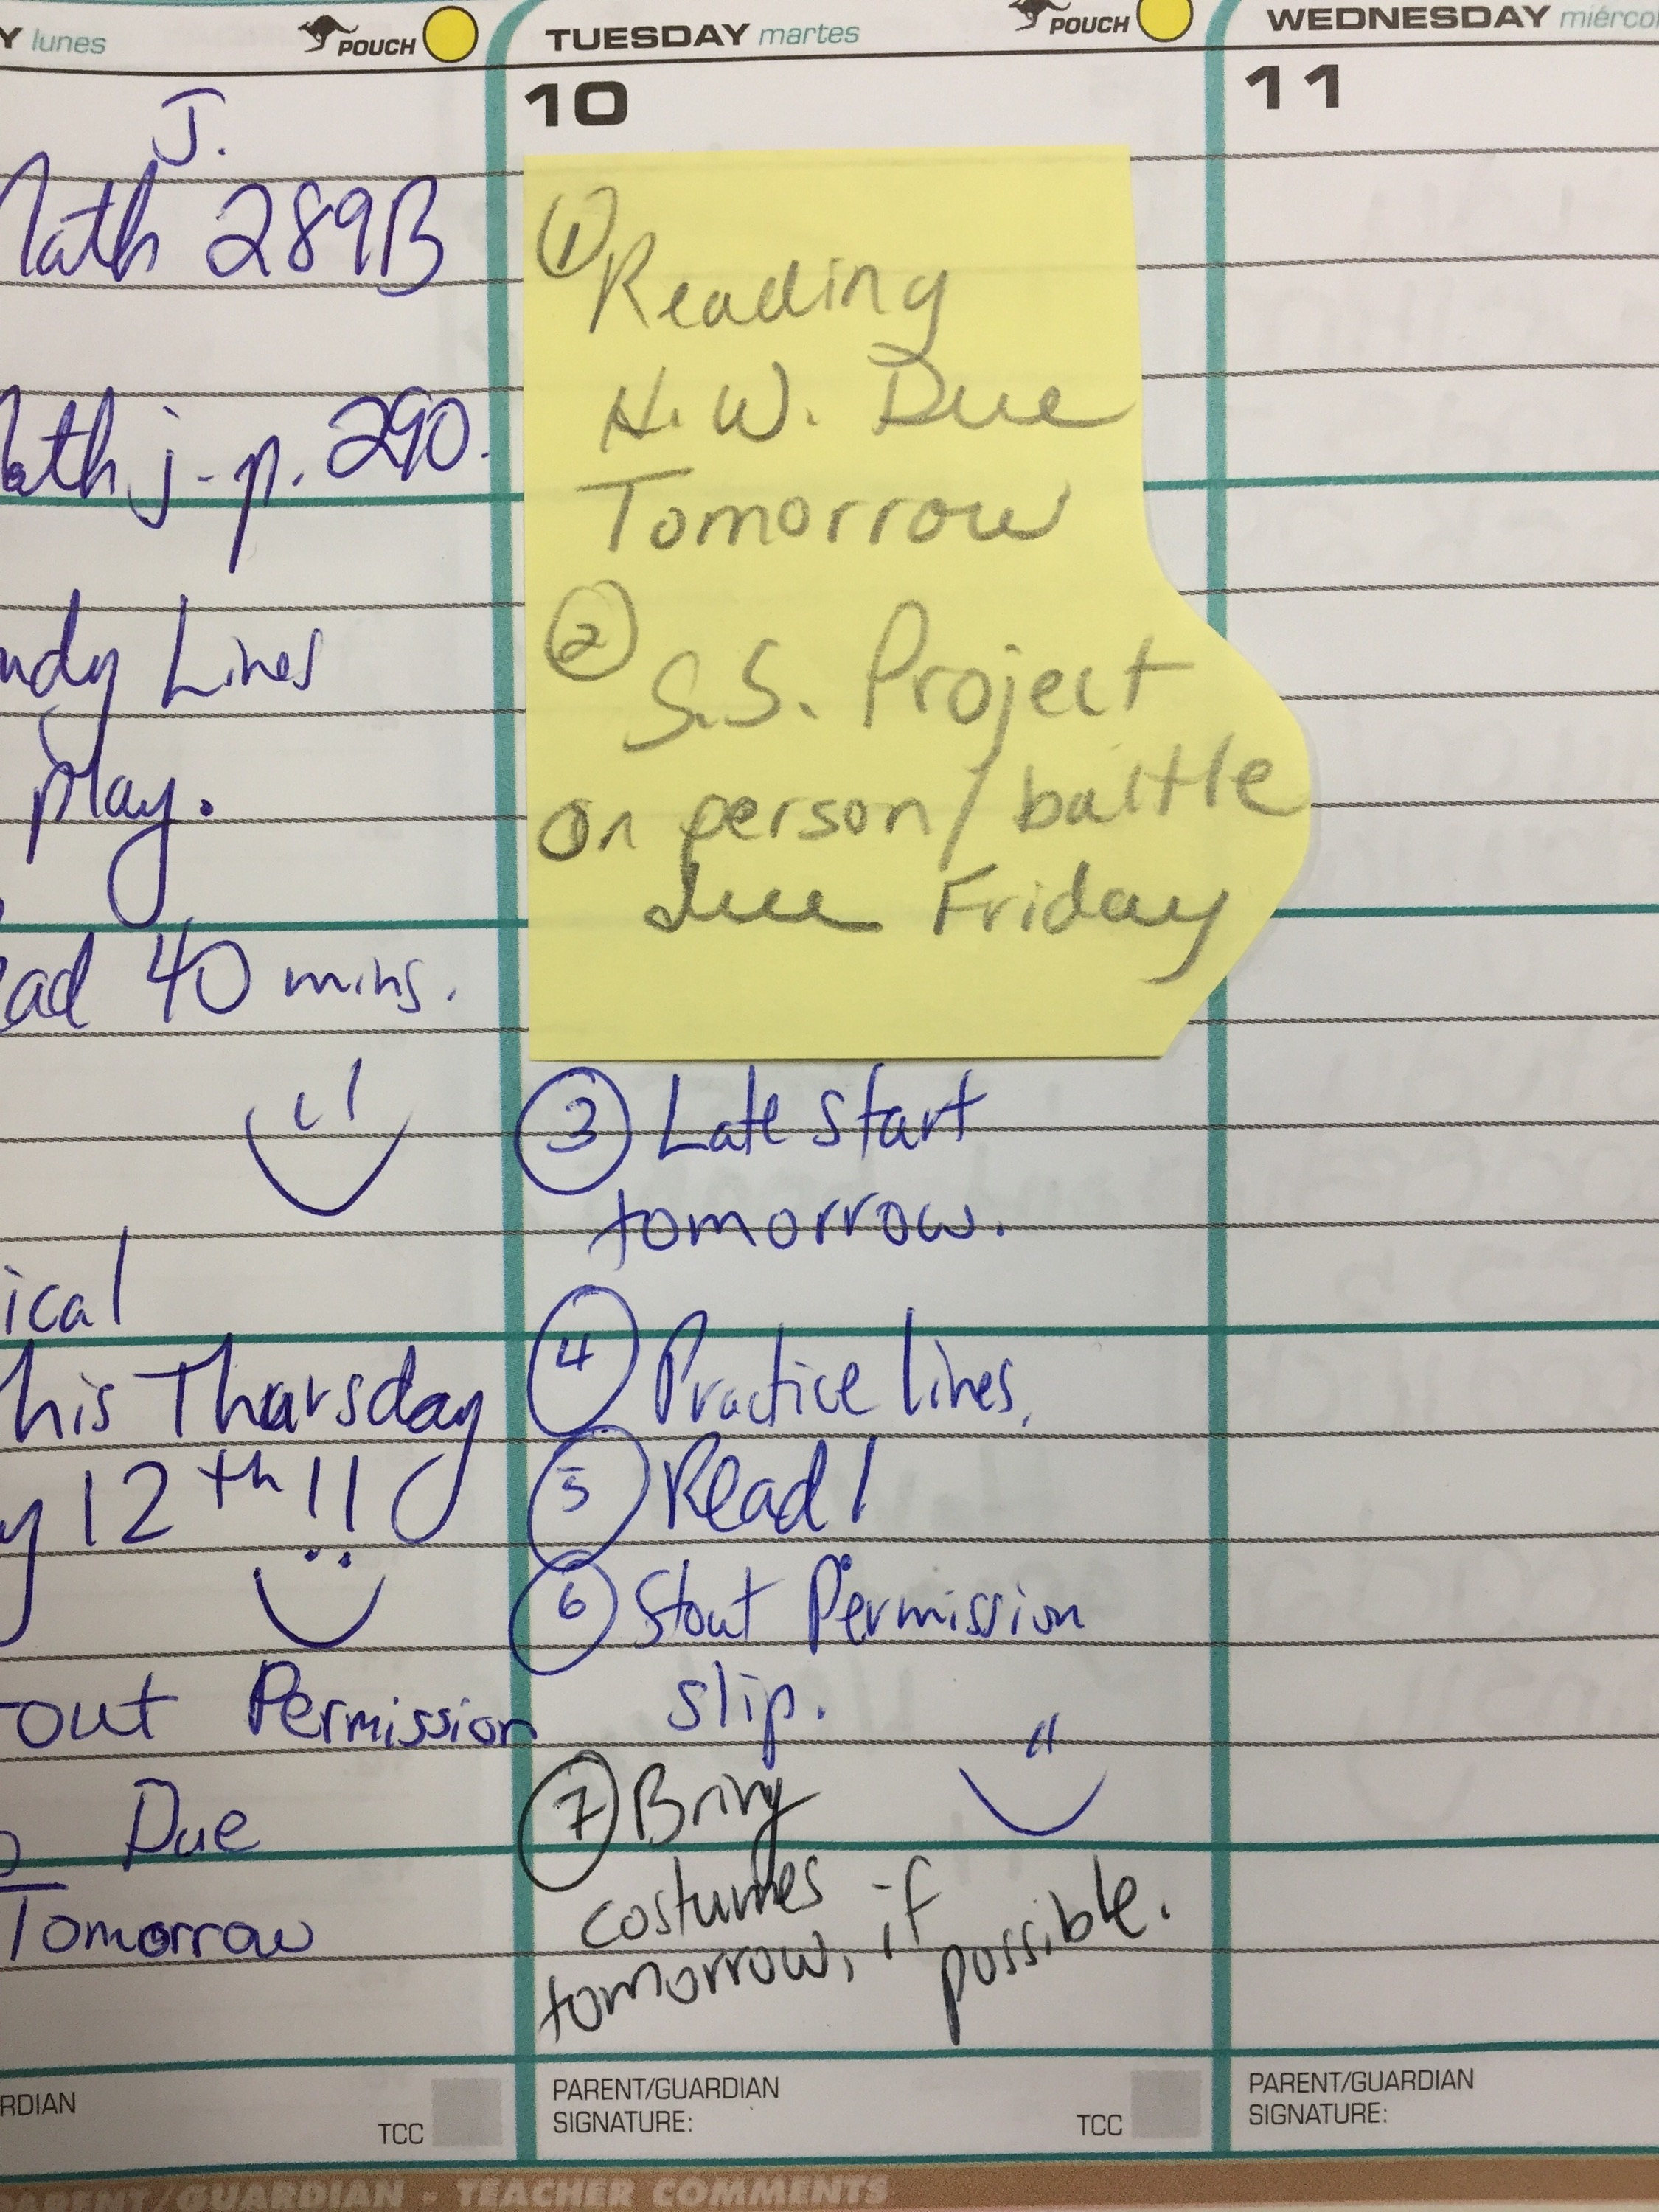 Y lunes
POUCH
J.
Math 289B
Math j-p. 290.
Lines
play.
40 mins.
ical
his Thursday
y 12th!!
out Permission
Due
Tomorrow
RDIAN
TCC
TUESDAY martes
POUCH
10
1 Reading
H.W. Due
Tomorrow
2 S.S. Project
on person/battle
due Friday
3 Late start
tomorrow.
4 Practice lines.
5 Read!
6 Stout Permission
slip.
7 Bring
costumes
tomorrow, if possible.
PARENT/GUARDIAN
SIGNATURE:
TCC
WEDNESDAY miércol
11
PARENT/GUARDIAN
SIGNATURE:
PARENT/GUARDIAN - TEACHER COMMENTS